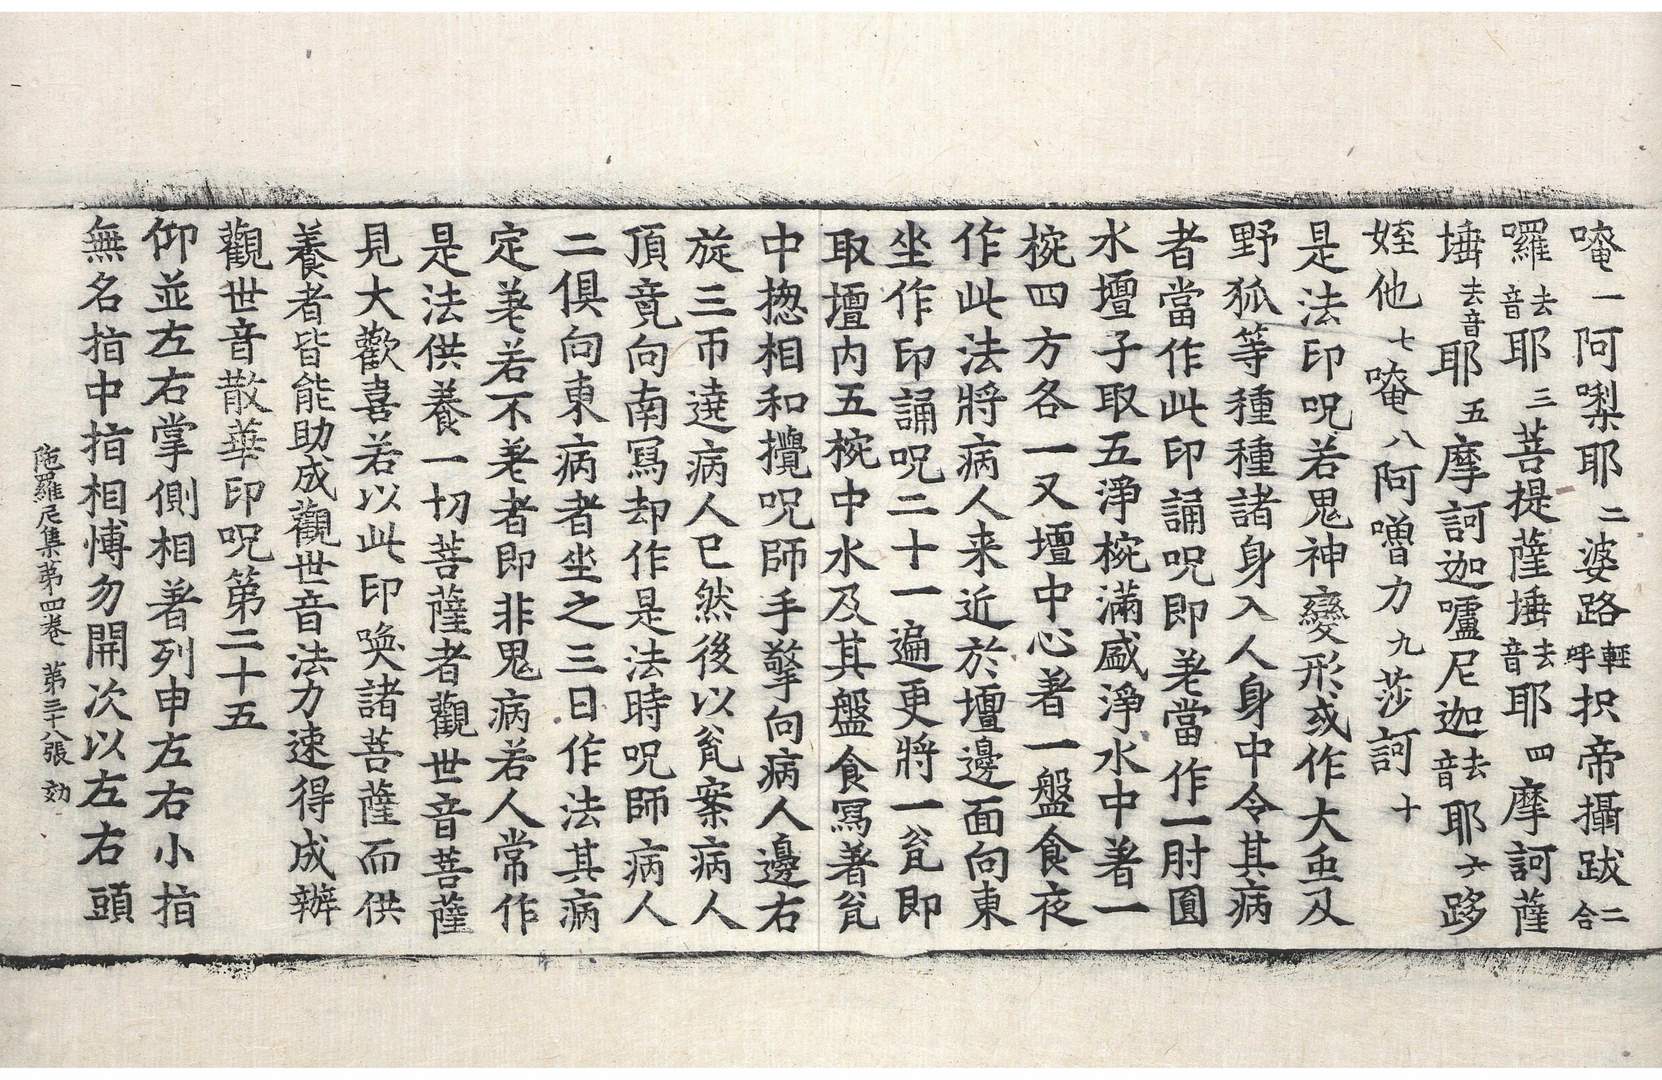 唵一阿㗚耶二婆路輕呼抧帝攝跋二合
囉去音耶三菩提薩埵去音耶四摩訶薩
埵去音耶五摩訶迦嚧尼迦去音耶六跢
姪他七唵八阿噌力九莎訶十
是法印呪若鬼神變形或作大虫及
野狐等種種諸身入人身中令其病
者當作此印誦呪即差當作一肘圓
水壇子取五淨椀滿盛淨水中著一
椀四方各一又壇中心著一盤食夜
作此法將病人来近於壇邊面向東
坐作印誦呪二十一遍更將一瓮即
取壇内五椀中水及其盤食寫著瓮
中揔相和攪呪師手擎向病人邊右
旋三帀遶病人已然後以瓮案病人
頂竟向南寫却作是法時呪師病人
二俱向東病者坐之三日作法其病
定差若不差者即非鬼病若人常作
是法供養一切菩薩者觀世音菩薩
見大歡喜若以此印喚諸菩薩而供
養者皆能助成觀世音法力速得成辦
觀世音散華印呪第二十五
仰並左右掌側相著列申左右小指
無名指中指相愽勿開次以左右頭
陁羅尼集第四卷 第三十八張 効